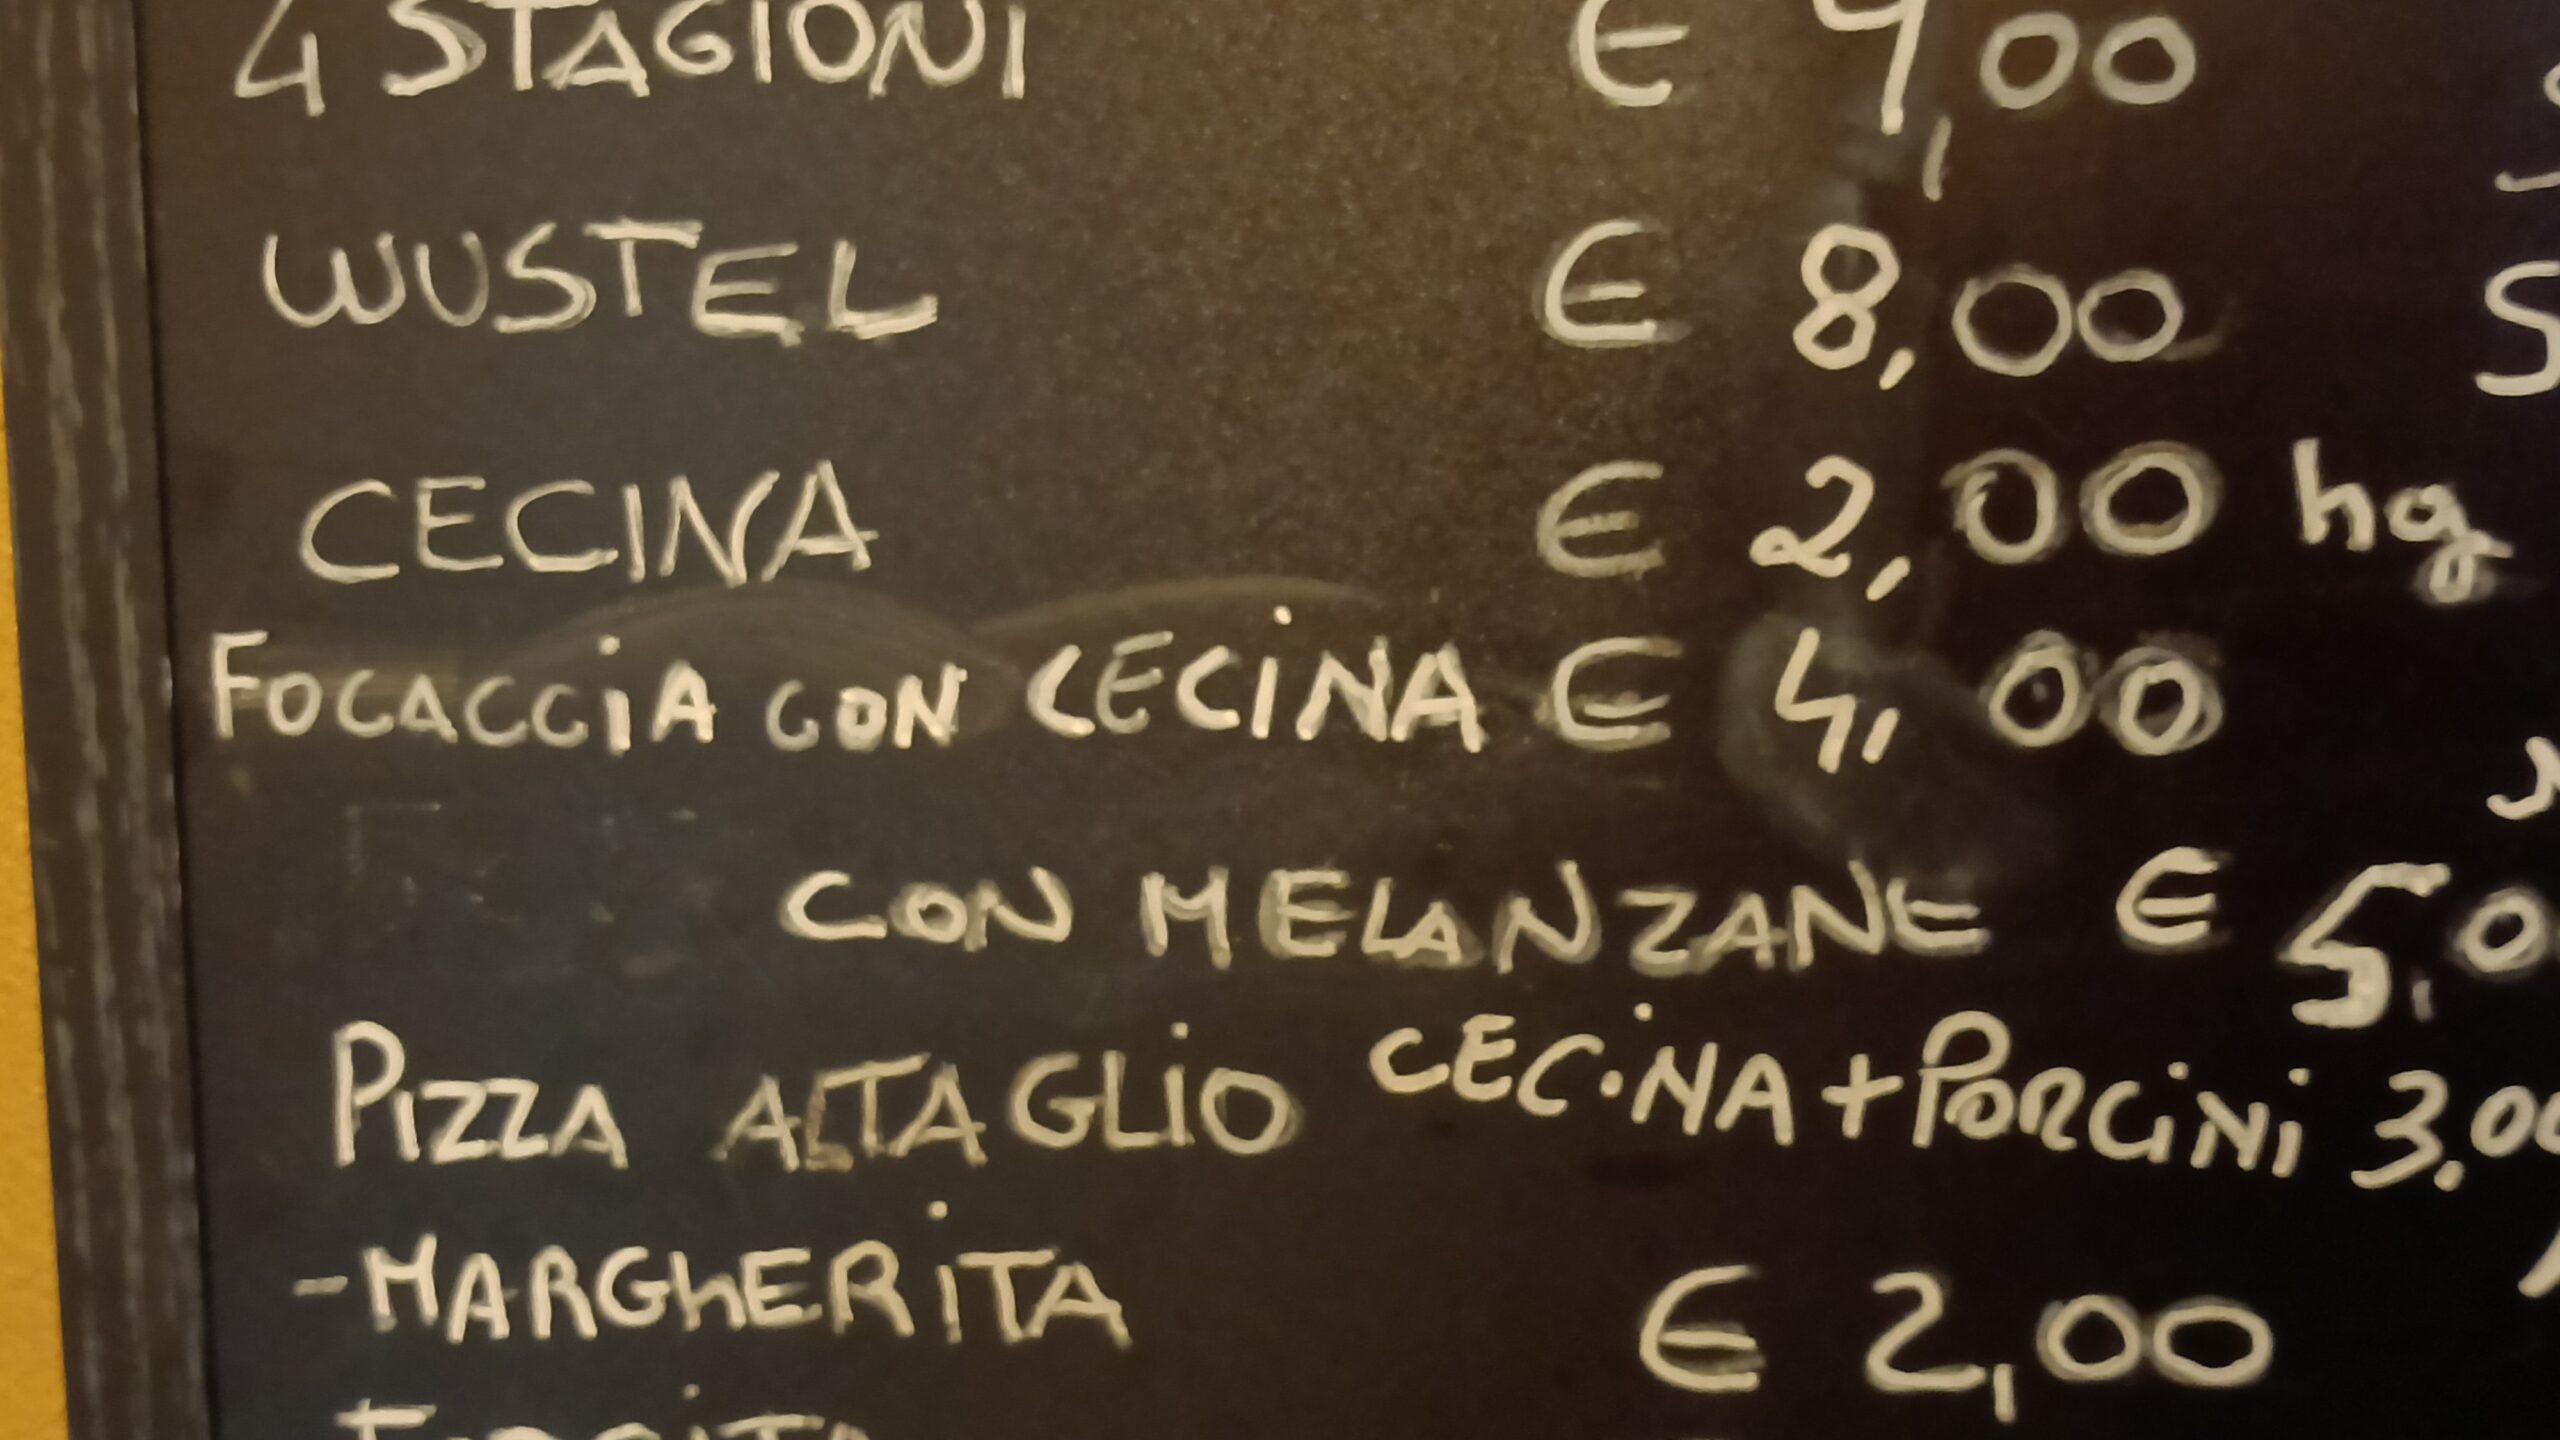 4 STAGIONI € 9,00
WUSTEL € 8,00
CECINA € 2,00 hg
FOCACCIA CON CECINA € 4,00
CON MELANZANE € 5,0
PIZZA AL TAGLIO CECINA + PORCINI 3.00
- MARGHERITA € 2,00